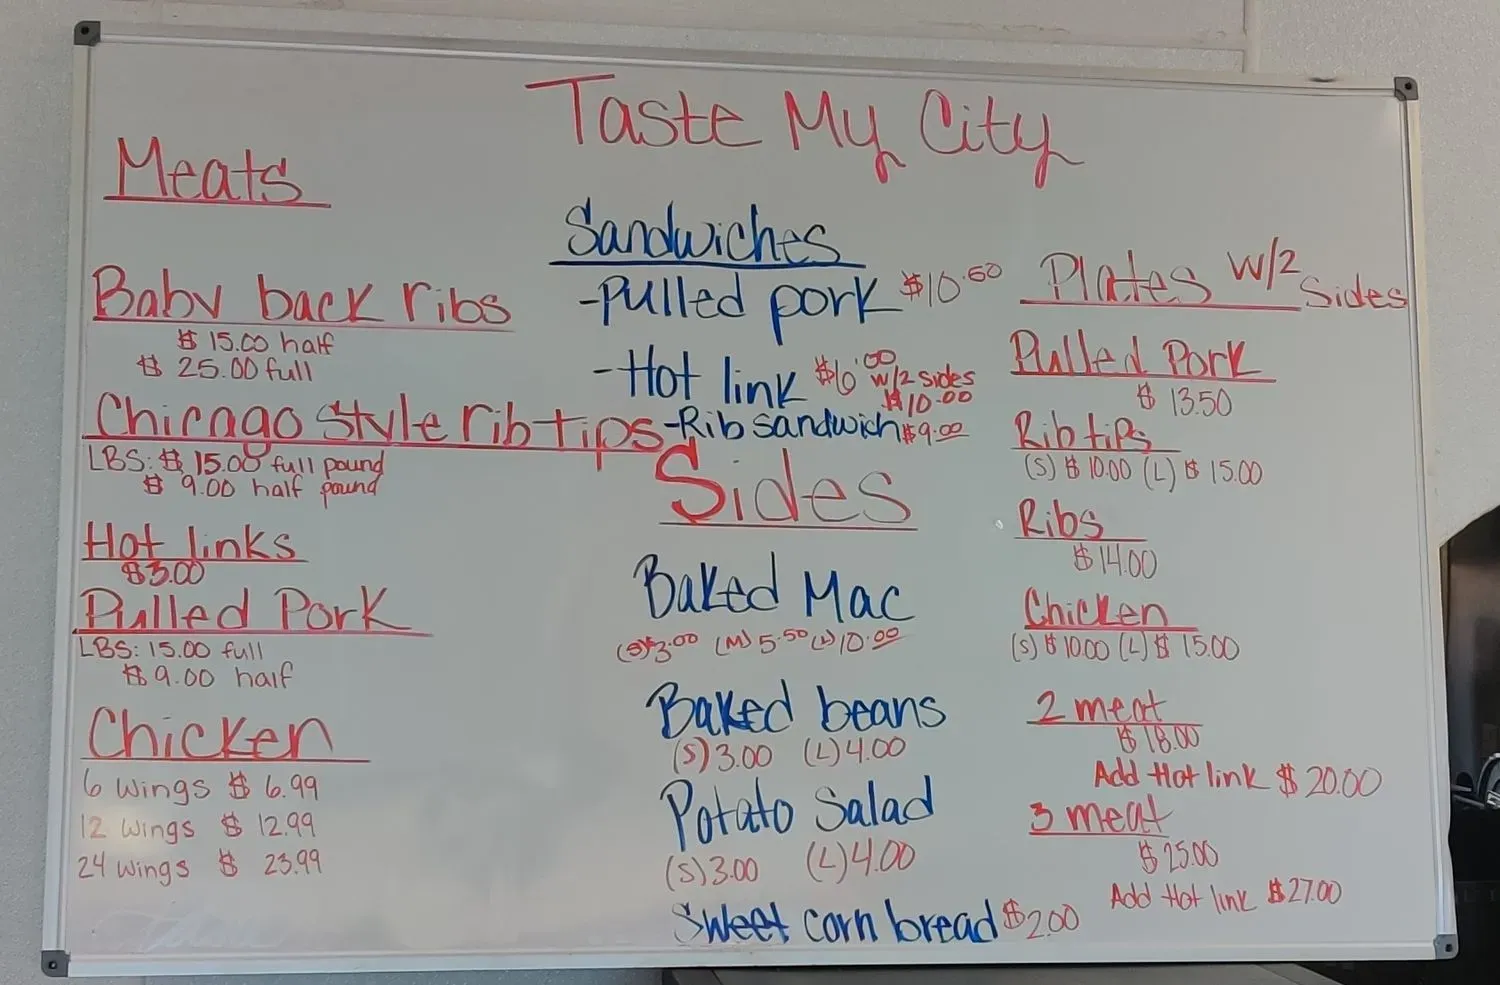 Taste My City
Meats
Baby back ribs
$ 15.00 half
$ 25.00 full
Chicago Style rib tips
LBS: $ 15.00 full pound
$ 9.00 half pound
Hot links
$3.00
Pulled Pork
LBS: 15.00 full
$ 9.00 half
Chicken
6 Wings $ 6.99
12 Wings $ 12.99
24 Wings $ 23.99
Sandwiches
-Pulled pork $10.50
-Hot link $6.00
w/2 sides
$10.00
-Rib sandwich $9.00
Sides
Baked Mac
(S)$3.00 (M) 5.50 (L) 10.00
Baked beans
(S) 3.00 (L) 4.00
Potato Salad
(S) 3.00 (L) 4.00
Sweet corn bread $2.00
Plates w/2 sides
Pulled Pork
$ 13.50
Rib tips
(S) $ 10.00 (L) $ 15.00
Ribs
$ 14.00
Chicken
(S) $ 10.00 (L) $ 15.00
2 meat
$ 18.00
Add Hot link $ 20.00
3 meat
$ 25.00
Add Hot link $27.00